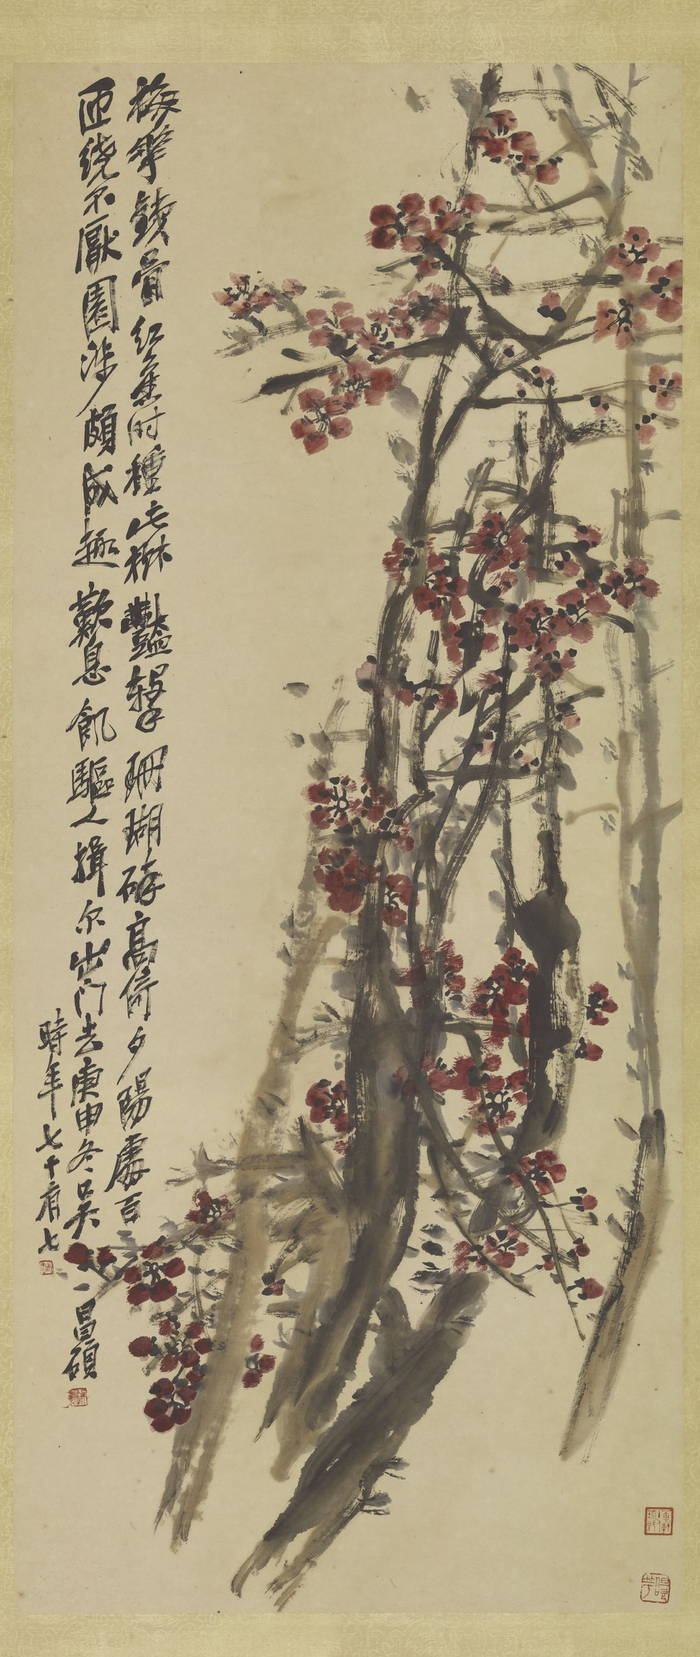 梅華鐵骨紅蕉時種此樹艷擊珊瑚碎高倚夕陽處百
匝繞不厭園涉頗成趣歎息飢驅人揖尔出門去庚申冬吳昌碩
時年七十有七